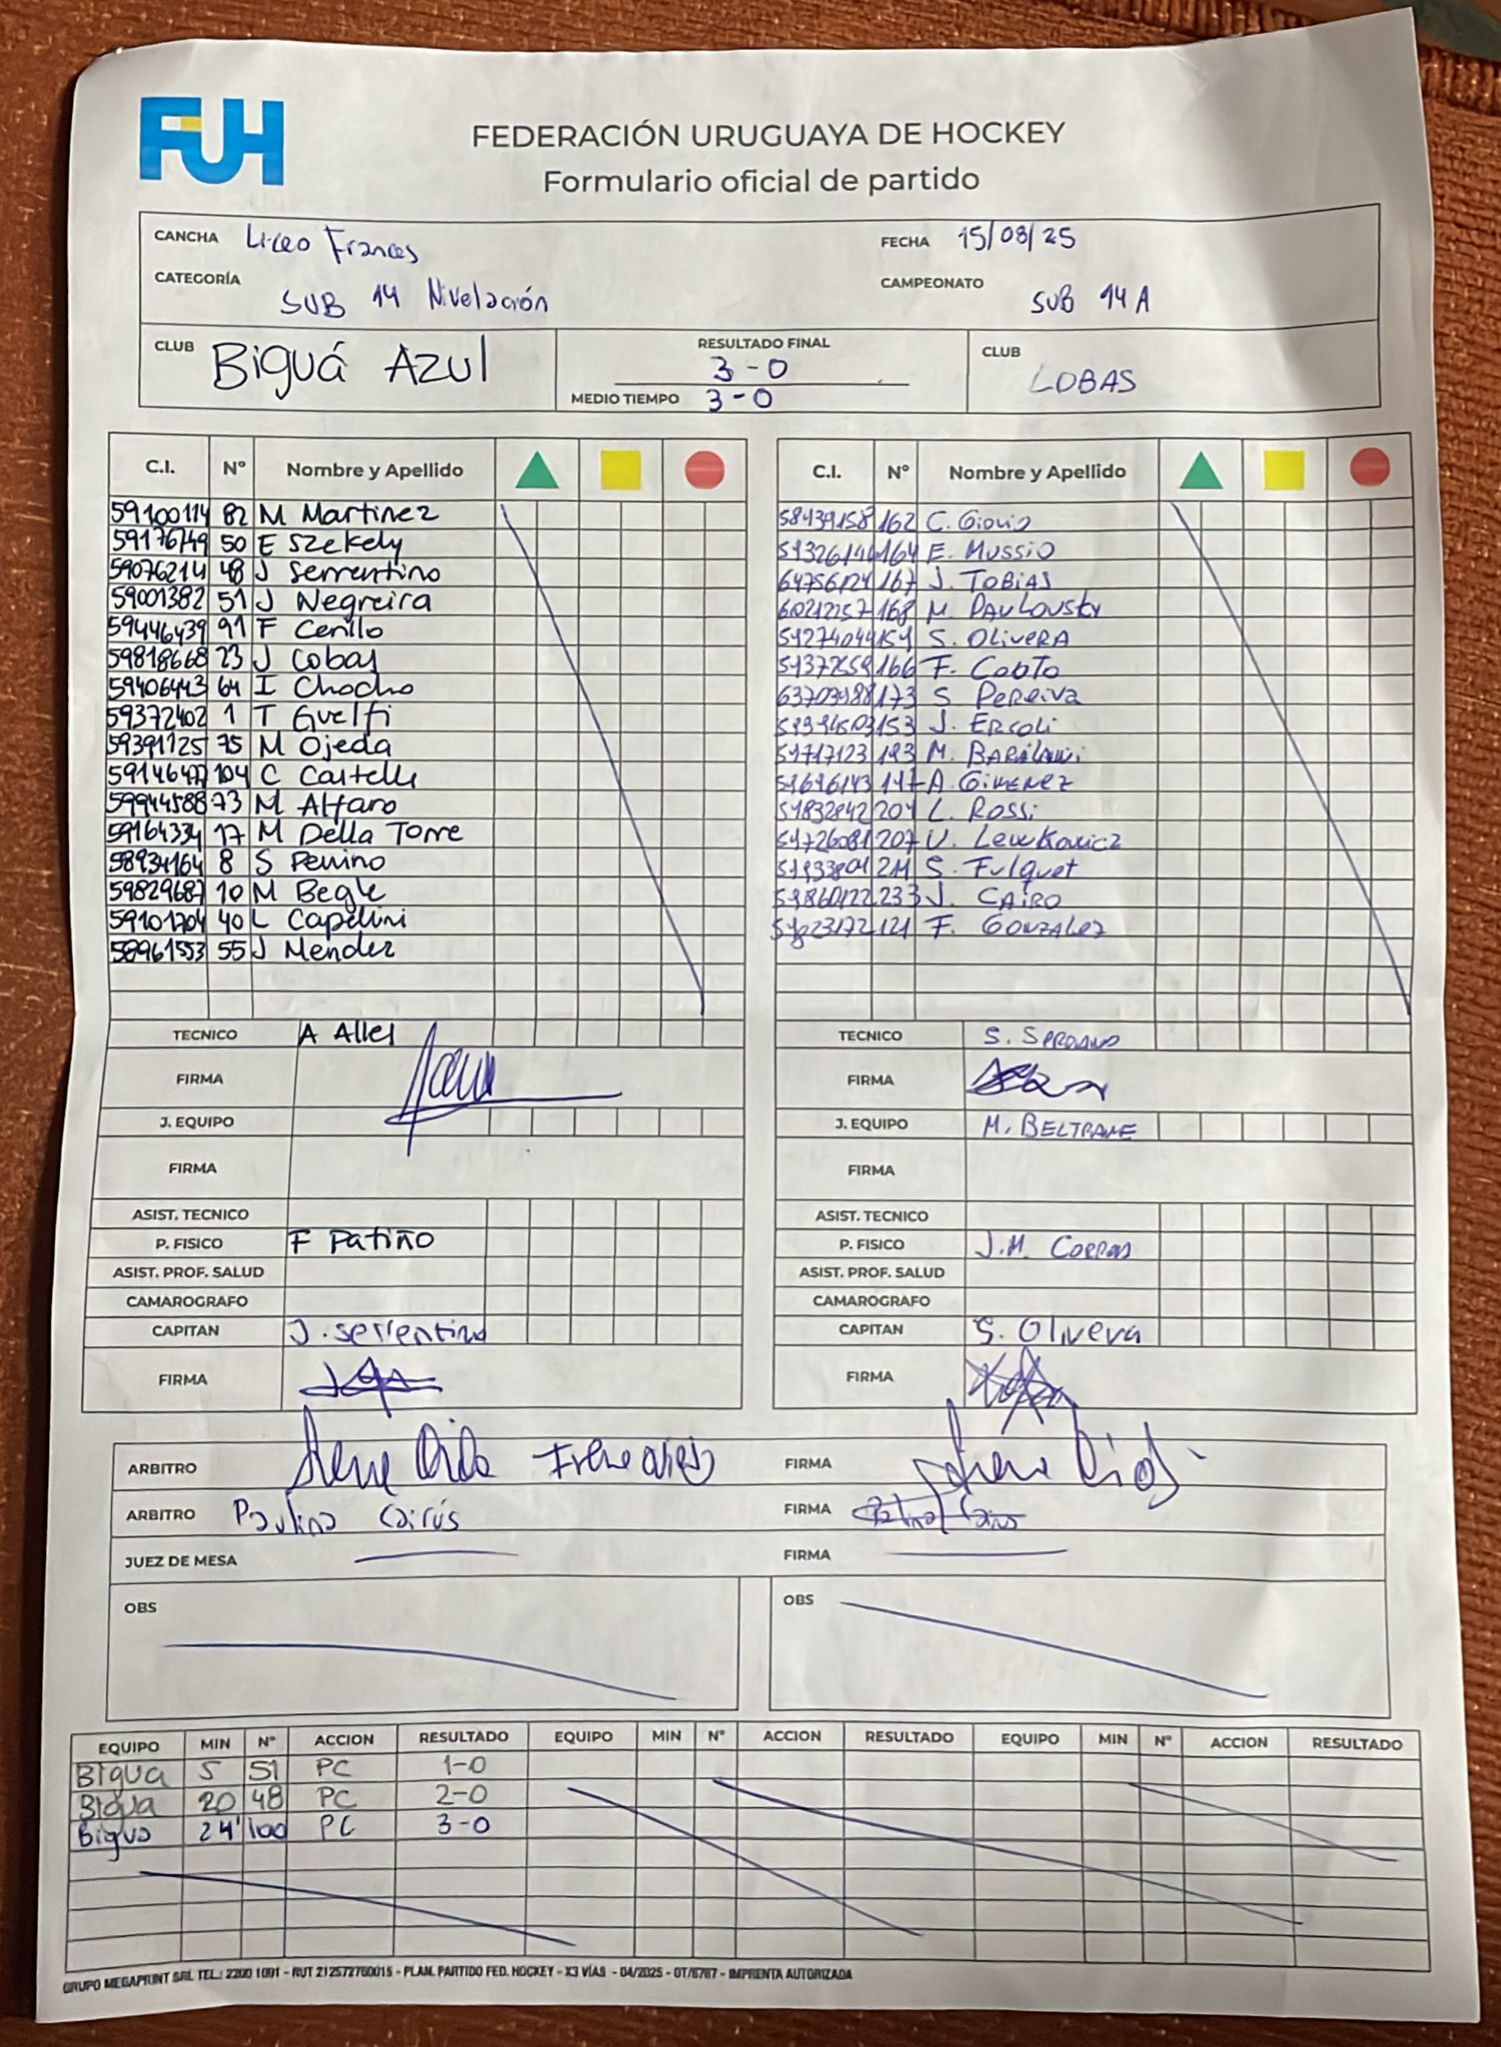 FUH
FEDERACIÓN URUGUAYA DE HOCKEY
Formulario oficial de partido
CANCHA Liceo Frances FECHA 15/08/25
CATEGORÍA SUB 14 Nivelación CAMPEONATO SUB 14 A
CLUB Biguá Azul RESULTADO FINAL 3-0 CLUB LOBAS
MEDIO TIEMPO 3-0
C.I. Nº Nombre y Apellido C.I. Nº Nombre y Apellido
59100114 82 M Martinez 162 C. Giovio
50 E Szekely 164 E. Mussio
59076214 48 J Serrentino 167 J. TOBIAS
59001382 51 J Negreira 168 M. PAULOVSKY
59446439 91 F Cerillo S. OLIVERA
59818668 23 J Cobas 166 F. Cooto
59406443 64 I Chocho 173 S PEREIVA
59372402 1 T Guelfi 153 J. ERCOLI
59391125 75 M Ojeda M.
104 C Castells A. GIMENEZ
59944588 73 M Alfaro L. ROSSI
59164334 17 M Della Torre 207 Lewkowicz
58934164 8 S Perrino 211 S. Fulquet
59829687 10 M Begle 233 J. CAIRO
59101204 40 L Capellini 121 F. GONZALEZ
58961553 55 J Mendez
TECNICO A Alles TECNICO S.
FIRMA FIRMA
J. EQUIPO J. EQUIPO M. BELTRAME
FIRMA FIRMA
ASIST. TECNICO ASIST. TECNICO
P. FISICO F Patiño P. FISICO J.M.
ASIST. PROF. SALUD ASIST. PROF. SALUD
CAMAROGRAFO CAMAROGRAFO
CAPITAN J. Serrentino CAPITAN S. Olivera
FIRMA FIRMA
ARBITRO FIRMA
ARBITRO Paulina Cairús FIRMA
JUEZ DE MESA FIRMA
OBS OBS
EQUIPO MIN Nº ACCION RESULTADO EQUIPO MIN Nº ACCION RESULTADO EQUIPO MIN Nº ACCION RESULTADO
Bigua 5 51 PC 1-0
Bigua 20 48 PC 2-0
Bigua 24' 100 PC 3-0
GRUPO MEGAPRINT SRL TEL.: 2200 1001 - RUT 212572760015 - PLAN. PARTIDO FED. HOCKEY - X3 VÍAS - 04/2025 - OT/6767 - IMPRENTA AUTORIZADA